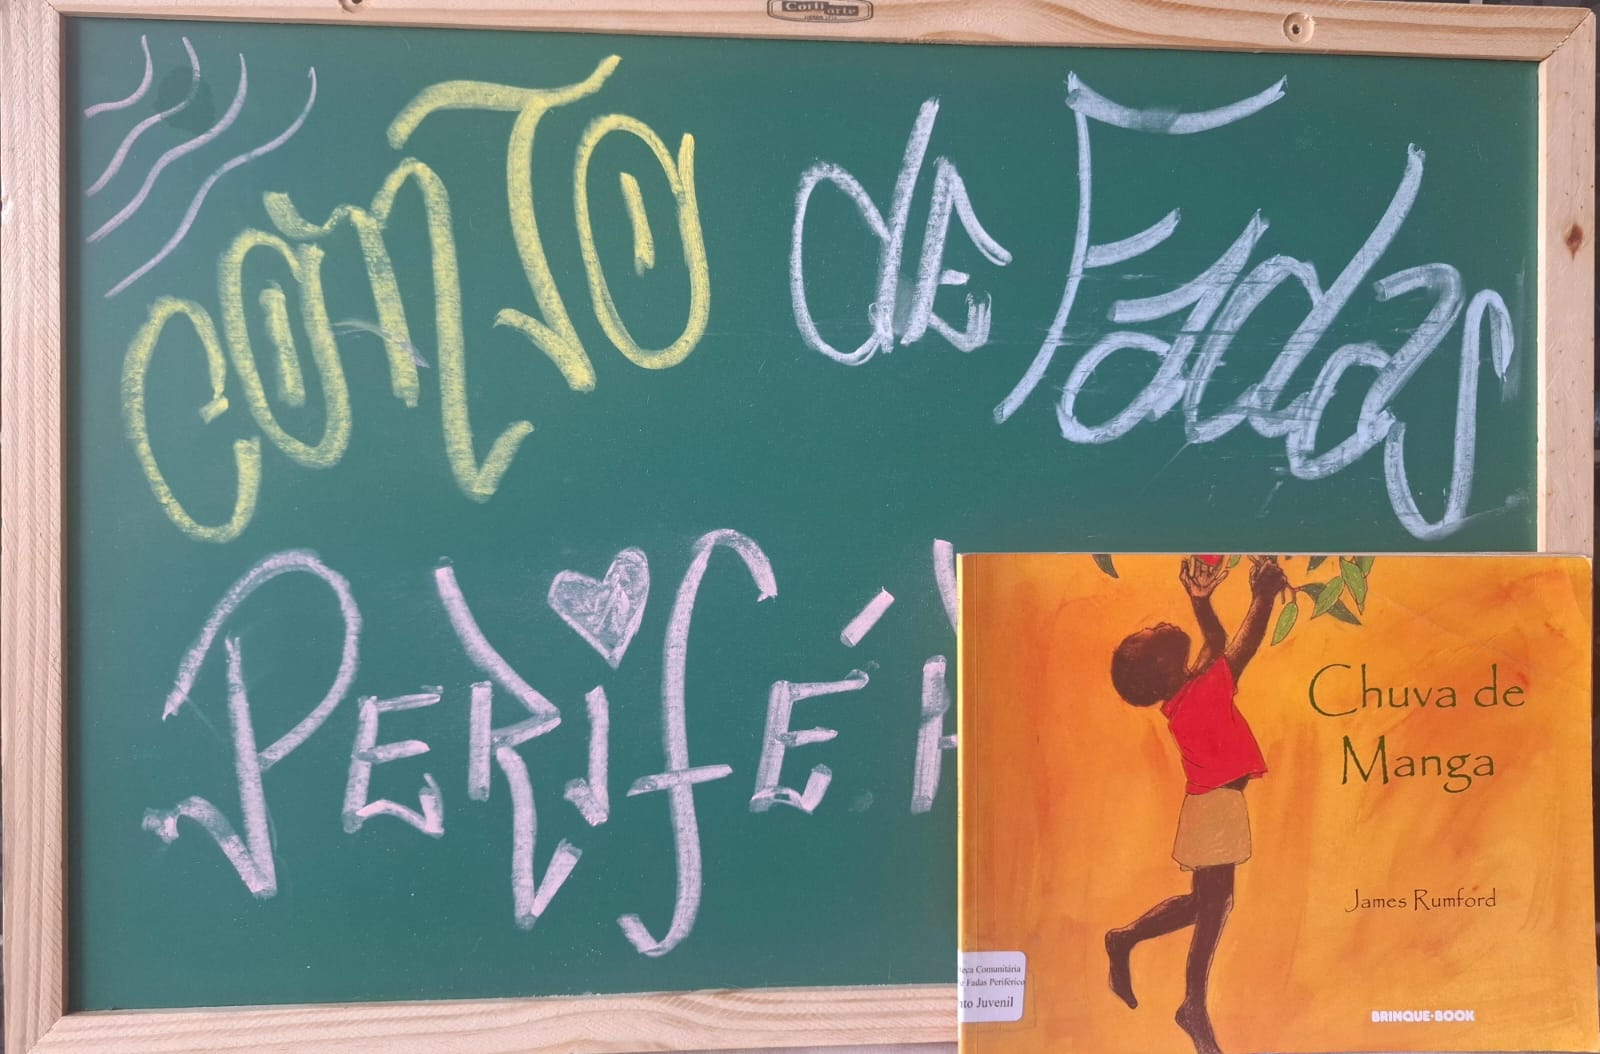 CONTO de Fadas
PERIFÉR
Chuva de
Manga
James Rumford
teca Comunitária
e Fadas Periférico
nto Juvenil
BRINQUE-BOOK